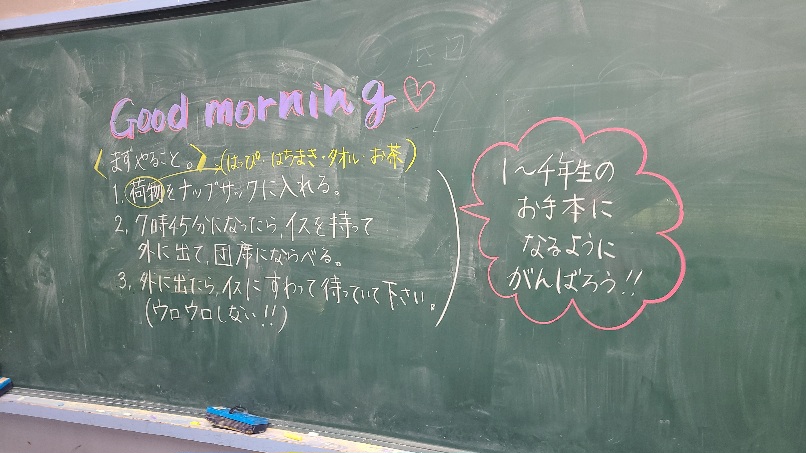 Good morning♡
〈まずやること。〉(はっぴ・はちまき・タオル・お茶)
1. 荷物をナップサックに入れる。
2. 7時45分になったら、イスを持って
外に出て、団席にならべる。
3. 外に出たら、イスにすわって待っていて下さい。
(ウロウロしない!!)
1〜4年生の
お手本に
なるように
がんばろう!!